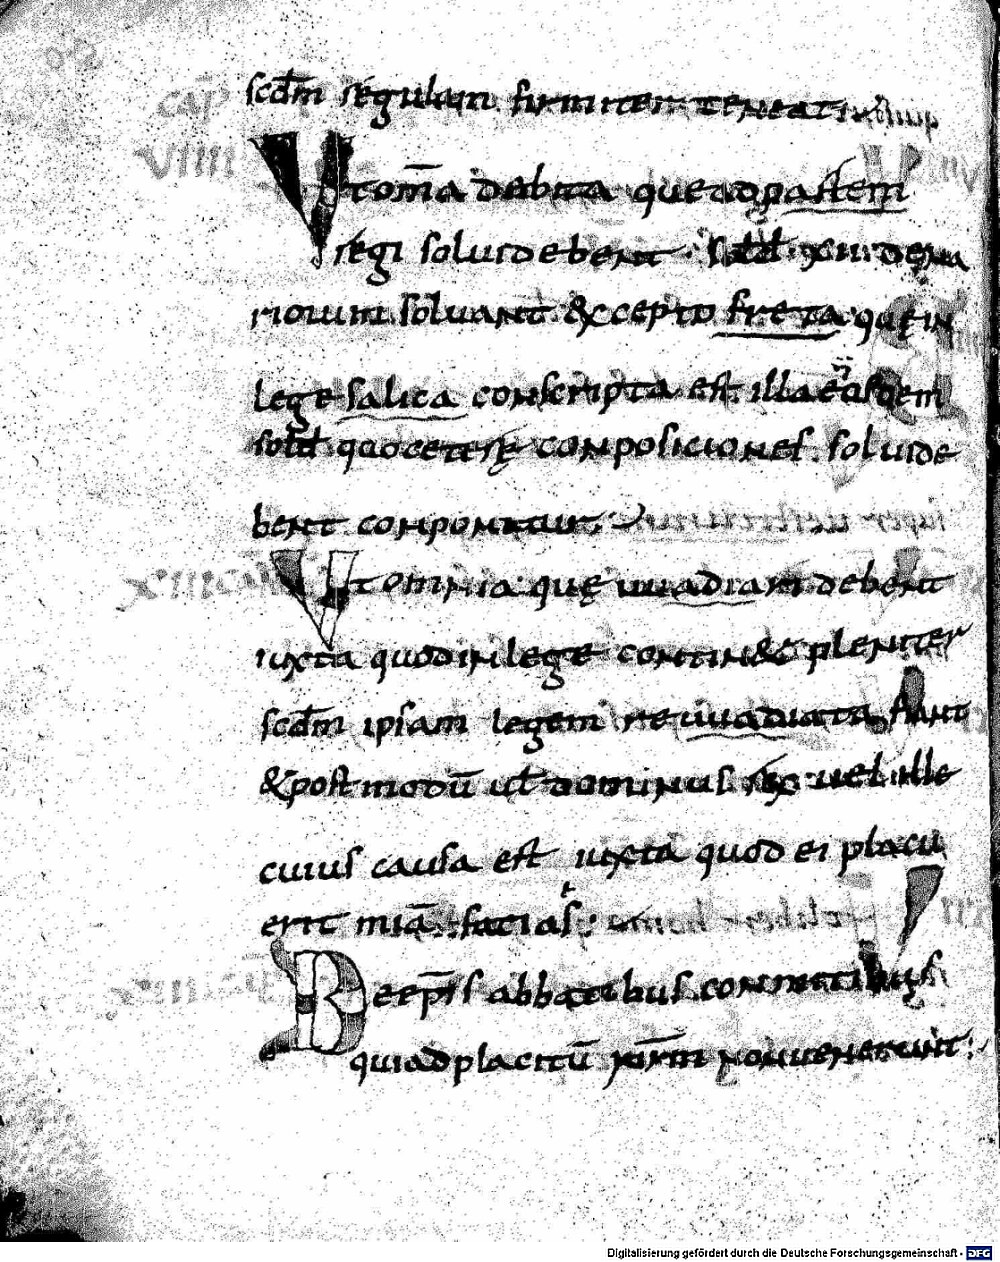 scd̄m regulam firmiter teneat
Ut om̄a debita que ad partem
regi solui debent. sold. xii. dena
riorum soluant. & excepto freta que in
lege salica conscripta est. illa eisdem
sold quo cetere composiciones. solui de
bent componatur.
Ut omnia que wadiari debent
iuxta quod in lege contin& pleniter
scd̄m ipsam legem rewadiata fiant
& postmodū ul dominus rex uel ille
cuius causa est iuxta quod ei placu
erit miā. faciat.
De ep̄is abbatibus comitibus
qui ad placitū nr̄m non uenerunt.
CAP
VIIII
Digitalisierung gefördert durch die Deutsche Forschungsgemeinschaft - DFG